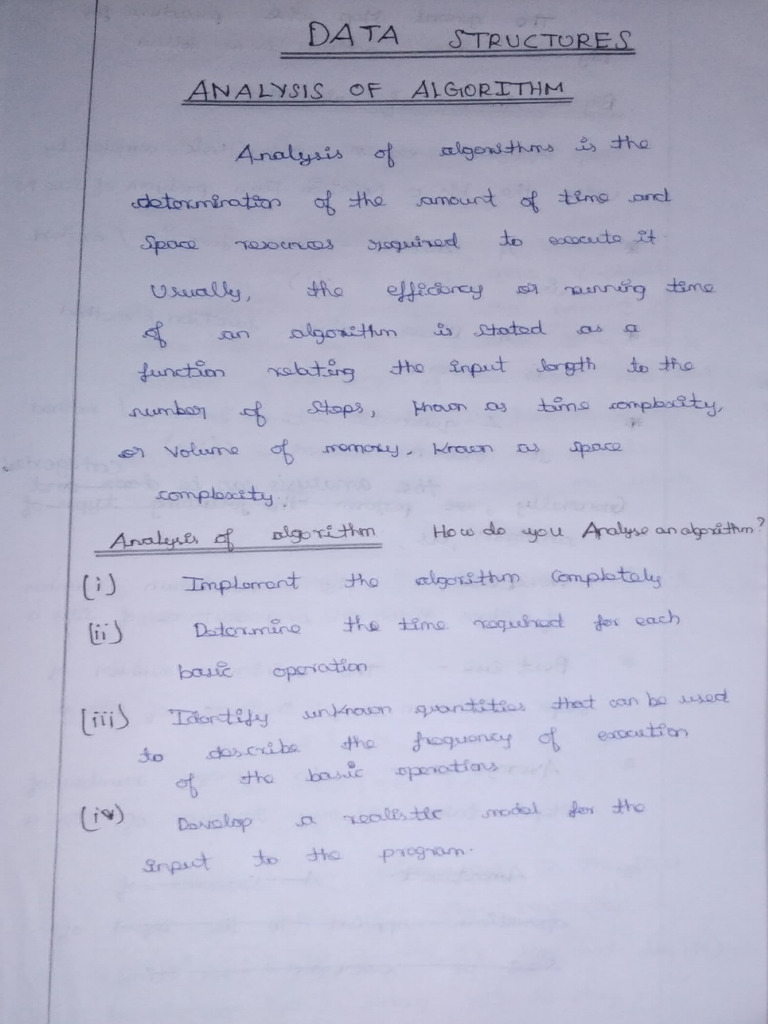 DATA STRUCTURES
ANALYSIS OF ALGORITHM
Analysis of algorithms is the
determination of the amount of time and
space resources required to execute it.
Usually, the efficiency or running time
of an algorithm is stated as a
function relating the input length to the
number of steps, known as time complexity,
or volume of memory, known as space
complexity.
Analysis of algorithm How do you Analyse an algorithm?
(i) Implement the algorithm completely
(ii) Determine the time required for each
basic operation
(iii) Identify unknown quantities that can be used
to describe the frequency of execution
of the basic operations
(iv) Develop a realistic model for the
input to the program.